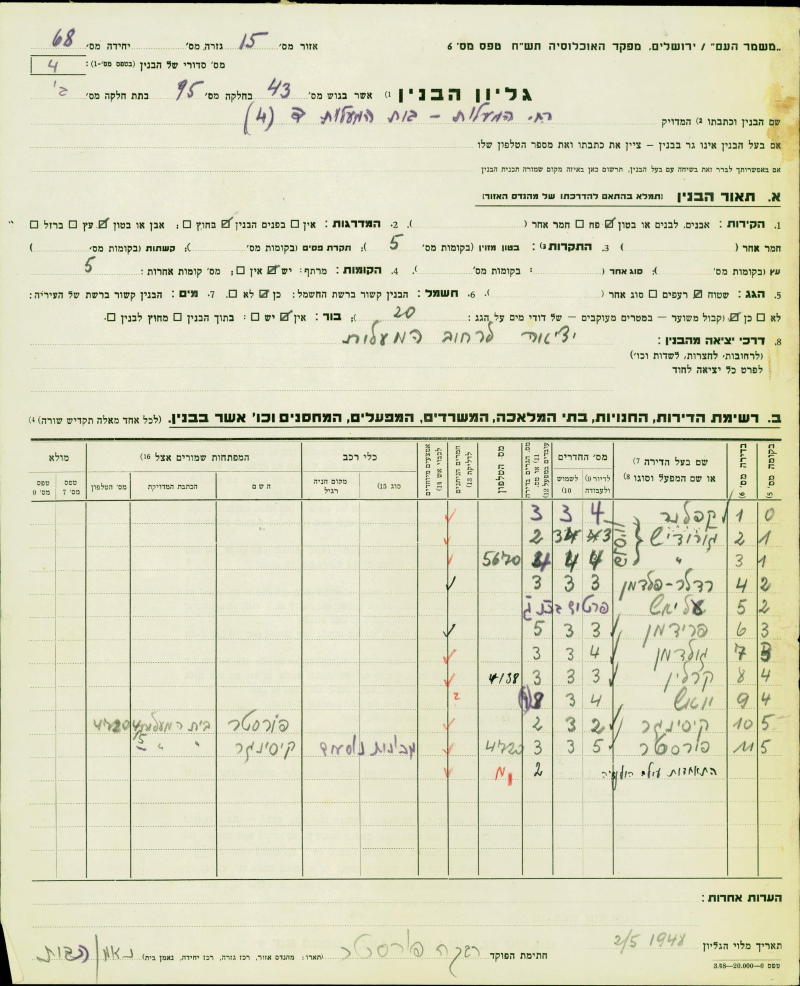 „משמר העם" / ירושלים, מפקד האוכלוסיה תש"ח טפס מס׳ 6
אזור מס׳ 15 גזרה, מס׳ יחידה מס׳ 68
מס׳ סדורי של הבנין (בטפס מס׳–1): 4
גליון הבנין 1) אשר בגוש מס׳ 43 בחלקה מס׳ 95 בתת חלקה מס׳
שם הבנין וכתבתו 2) המדויק רח. המעלות – בית המעלות (4)
אם בעל הבנין אינו גר בבנין – ציין את כתבתו ואת מספר הטלפון שלו
אם באפשרותך לברר זאת בשיחה עם בעל הבנין, תרשום כאן באיזה מקום שמורה תכנית הבנין
א. תאור הבנין (תמלא בהתאם להדרכתו של מהנדס האזור)
1. הקירות: אבנים, לבנים או בטון ☑ פח ☐ חמר אחר ( ). 2. המדרגות: אין ☐ בפנים הבנין ☑ בחוץ ☐; אבן או בטון ☑ עץ ☐ ברזל ☐
חמר אחר ( ) 3. התקרות 3): בטון מזוין (בקומות מס׳ 5 ); תקרת פסים (בקומות מס׳ ); קשתות (בקומות מס׳ )
עץ (בקומות מס׳ ); סוג אחר ( ; בקומות מס׳ ). 4. הקומות: מרתף: יש ☑ אין ☐; מס׳ קומות אחרות: 5
5. הגג: שטוח ☑ רעפים ☐ סוג אחר ( ). 6. חשמל: הבנין קשור ברשת החשמל: כן ☑ לא ☐. 7. מים: הבנין קשור ברשת של העיריה:
לא ☐ כן ☑ (קבול משוער – במטרים מעוקבים – של דודי מים על הגג: 20 ); בור: אין ☑ יש ☐: בתוך הבנין ☐ מחוץ לבנין ☐.
8. דרכי יציאה מהבנין: יציאה לרחוב המעלות
(לרחובות, לחצרות, לשדות וכו׳)
לפרט כל יציאה לחוד
ב. רשימת הדירות, החנויות, בתי המלאכה, המשרדים, המפעלים, המחסנים וכו׳ אשר בבנין. (לכל אחד מאלה תקדיש שורה) 4)
בקומה מס׳ 5) בדירה מס׳ 6) שם בעל הדירה 7) או שם המפעל וסוגו 8) מס׳ החדרים מס׳ הטלפון כלי רכב המפתחות שמורים אצל 16) מולא
לדיור 9) ולעבודה לשמוש 10) סוג 15) מקום חניה רגיל השם הכתבת המדויקת מס׳ הטלפון טפס מס׳ 7 טפס מס׳ 9
0 1 קפלנר 4 3 3
1 2 גורודיש 3 2
1 3 " 4 4 4 5620
2 4 רדלר-פלדמן 3 3 3
2 5 עליאש
3 6 פרידמן 3 3 5
3 7 גולדמן 4 3 3
4 8 קרלין 3 3 3 4138
4 9 יואש 4 3 8
5 10 קיסינגר 2 3 2 פורסטר בית המעלות 4720
5 11 פורסטר 5 3 3 4720 קיסינגר " "
התאחדות עולי 2
הערות אחרות:
תאריך מלוי הגליון 2/5 1948 חתימת הפוקד רבקה פורסטר (תארו: מהנדס אזור, רכז גזרה, רכז יחידה, נאמן בית). נאמן הבית
טפס 6–20.000–3.48